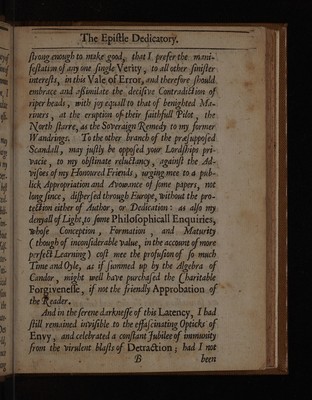 The Epistle Dedicatory.
strong enough to make good, that I prefer the mani-
festation of any one single Verity, to all other sinister
interests, in this Vale of Error, and therefore should
embrace and assimilate the decisive Contradiction of
riper heads, with joy equall to that of benighted Ma-
riners, at the eruption of their faithfull Pilot, the
North starre, as the Soveraign Remedy to my former
Wandrings. To the other branch of the præsupposed
Scandall, may justly be opposed your Lordships pri-
vacie, to my obstinate reluctancy, against the Ad-
vises of my Honoured Friends, urging mee to a pub-
lick Appropriation and Avowance of some papers, not
long since, dispersed through Europe, without the pro-
tection either of Author, or Dedication: as also my
denyall of Light, to some Philosophicall Enquiries,
whose Conception, Formation, and Maturity
(though of inconsiderable value, in the account of more
perfect Learning) cost mee the profusion of so much
Time and Oyle, as if summed up by the Algebra of
Candor, might well have purchased the Charitable
Forgivenesse, if not the friendly Approbation of
the Reader.
And in the serene darknesse of this Latency, I had
still remained invisible to the effascinating Opticks of
Envy, and celebrated a constant Jubilee of immunity
from the virulent blasts of Detraction; had I not
B been